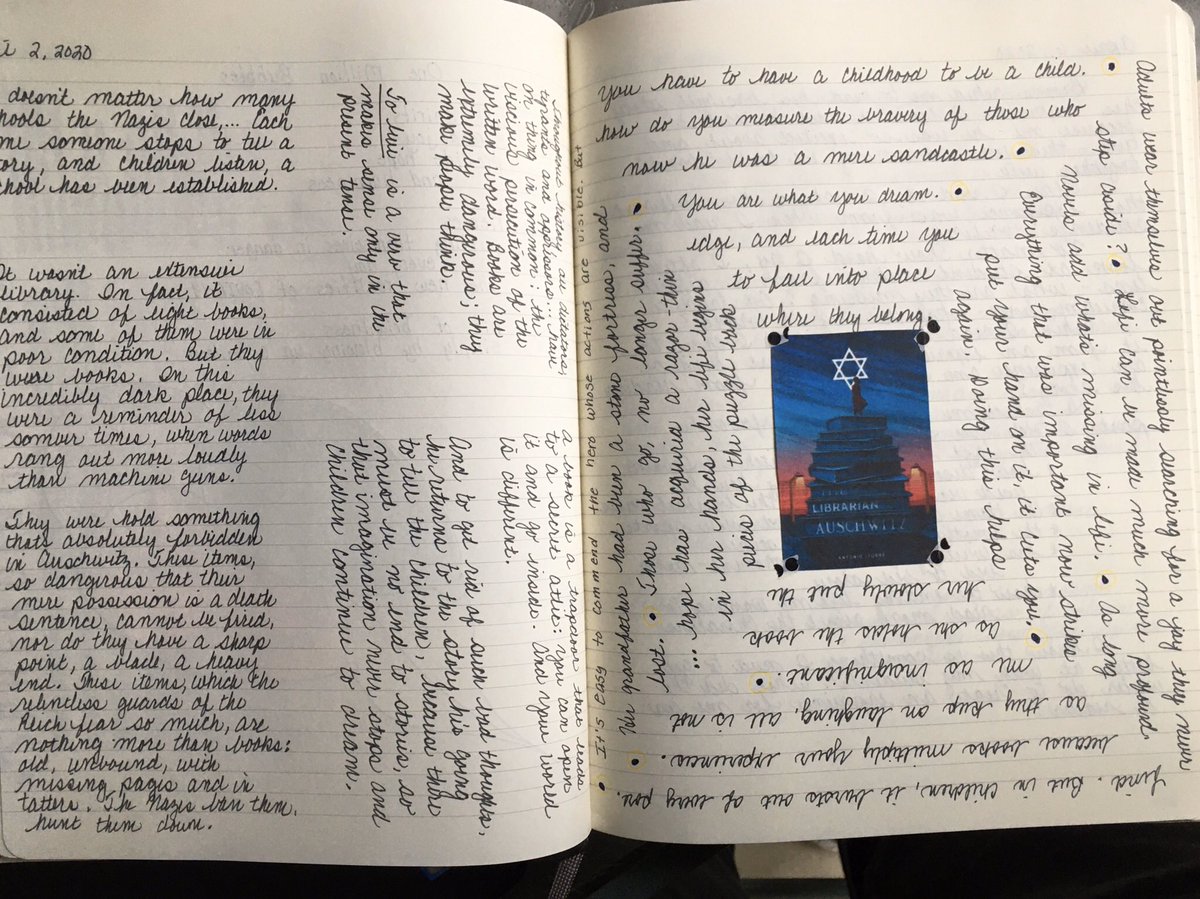 il 2, 2020
doesn't matter how many
hools the Nazis close,... Each
me someone stops to tell a
ory, and children listen, a
chool has been established.
It wasn't an extensive
library. In fact, it
consisted of eight books,
and some of them were in
poor condition. But they
were books. In this
incredibly dark place, they
were a reminder of less
somber times, when words
rang out more loudly
than machine guns.
They were hold something
thats absolutely forbidden
in Auschwitz. These items,
so dangerous that their
mere possession is a death
sentence, cannot be fired,
nor do they have a sharp
point, a blade, a heavy
end. These items, which the
relentless guards of the
Reich fear so much, are
nothing more than books:
old, unbound, with
missing pages and in
tatters. The Nazis ban them,
hunt them down.
Throughout history, all dictators,
tyrants and oppressors... have
on thing in common: the
vicious persecution of the
written word. Books are
extremely dangerous; they
make people think.
To live is a verb that
makes sense only in the
present tense.
A book is a trapdoor that leads
to a secret attic: you can open
it and go inside. And your world
is different.
And to get rid of such bad thoughts,
he returns to the story he's going
to tell the children, because there
must be no end to stories, so
that imagination never stops and
children continue to dream.
You have to have a childhood to be a child. •
Adults wear themselves out pointlessly searching for a joy they never
find. But in children, it bursts out of every pore.
• It's easy to commend the hero whose actions are visible. But
how do you measure the bravery of those who
step aside? • Life can be made much more profound
because books multiply your experiences.
• Her grandfather had been a stone fortress, and
now he was a mere sandcastle. •
Novels add what's missing in life. • As long
as they keep on laughing, all is not
lost. • Those who go, no longer suffer. •
You are what you dream. •
Everything that was important now strikes
me as insignificant. •
... Hope has acquired a razor-thin
edge, and each time you
put your hand on it, it cuts you. •
as she holds the book
in her hands, her life begins
to fall into place
again. Doing this helps
her slowly put the
pieces of the puzzle back
where they belong.
THE
LIBRARIAN
AUSCHWITZ
ANTONIO ITURBE